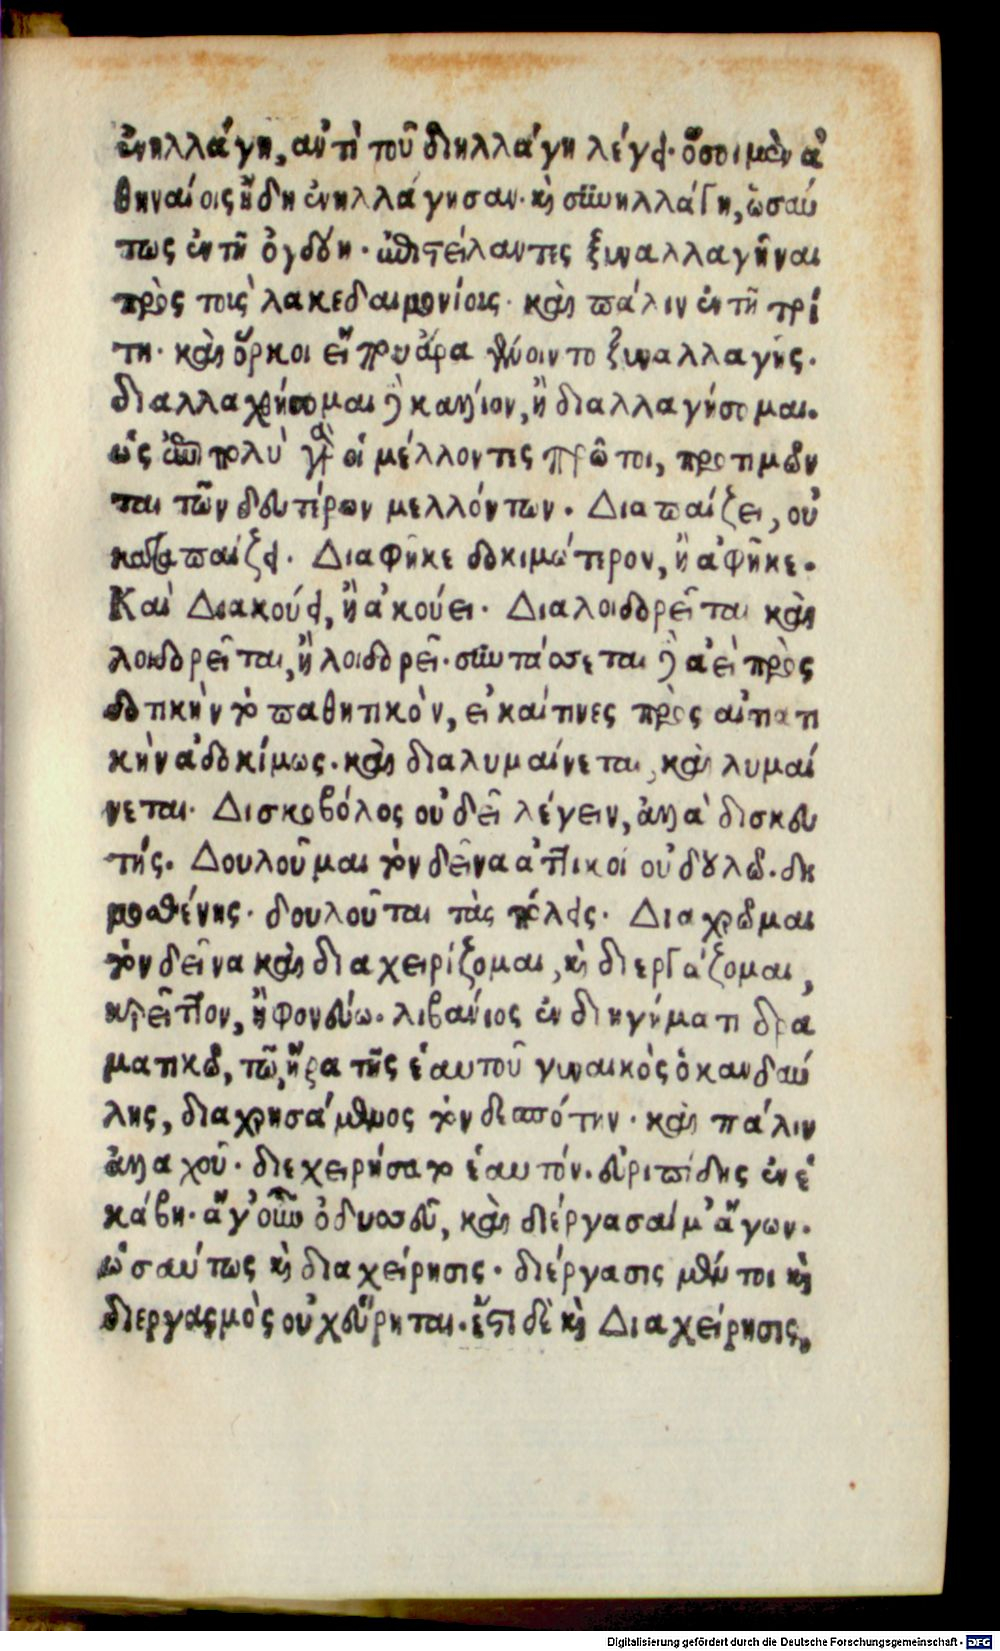 ἐνηλλάγη, ἀντὶ τοῦ διηλλάγη λέγει· ὅσοι μὲν ἀ
θηναίοις ἤδη ἐνηλλάγησαν· καὶ συνηλλάγη, ὡσαύ
τως ἐν τῇ ὀγδόῃ· ἐπιστείλαντες ξυναλλαγῆναι
πρὸς τοὺς λακεδαιμονίους· καὶ πάλιν ἐν τῇ τρί
τῃ· καὶ ὅρκοι εἴ που ἄρα γένοιντο ξυναλλαγῆς.
διαλλαχθήσομαι δὲ κάλλιον, ἢ διαλλαγήσομαι.
ὡς ἐπὶ πολὺ γὰρ οἱ μέλλοντες πρῶτοι, προτιμῶν
ται τῶν δευτέρων μελλόντων. Διαπαίζει, οὐ
καταπαίζει. Διαφῆκε δοκιμώτερον, ἢ ἀφῆκε.
Καὶ Διακούει, ἢ ἀκούει. Διαλοιδορεῖται καὶ
λοιδορεῖται, ἢ λοιδορεῖ· συντάσσεται δὲ ἀεὶ πρὸς
δοτικὴν τὸ παθητικὸν, εἰ καί τινες πρὸς αἰτιατι
κὴν ἀδοκίμως. καὶ διαλυμαίνεται, καὶ λυμαί
νεται. Δισκοβόλος οὐ δεῖ λέγειν, ἀλλὰ δισκευ
τής. Δουλοῦμαι τὸν δεῖνα ἀττικοὶ οὐ δουλῶ. δη
μοσθένης· δουλοῦται τὰς πόλεις. Διαχρῶμαι
τὸν δεῖνα καὶ διαχειρίζομαι, καὶ διεργάζομαι,
κρεῖττον, ἢ φονεύω. λιβάνιος ἐν διηγήματι δρα
ματικῷ, τῷ, ἤρα τῆς ἑαυτοῦ γυναικὸς ὁ κανδαύ
λης, διαχρησάμενος τὸν δεσπότην· καὶ πάλιν
ἀλλαχοῦ· διεχειρήσατο ἑαυτόν. εὐριπίδης ἐν ἑ
κάβῃ· ἄγ' οὖν ὀδυσσεῦ, καὶ διέργασαί μ' ἄγων.
ὡσαύτως καὶ διαχείρησις· διέργασις μέν τοι καὶ
διεργασμὸς οὐχ εὕρηται. ἔστι δὲ καὶ Διαχείρησις,
Digitalisierung gefördert durch die Deutsche Forschungsgemeinschaft - DFG